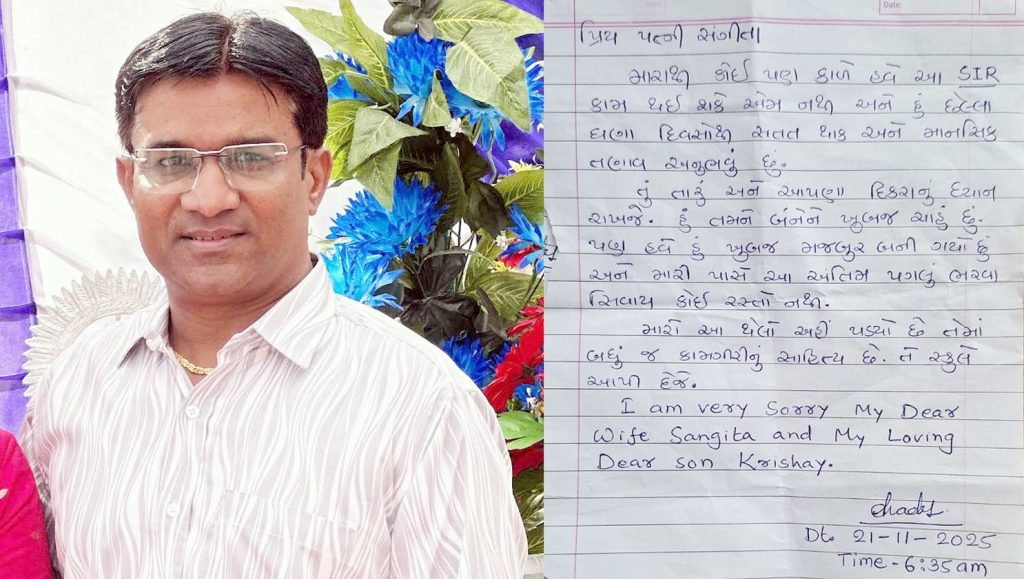 Date:
પ્રિય પત્ની સંગીતા
મારાથી કોઈ પણ કાળે હવે આ SIR
કામ થઈ શકે એમ નથી અને હું છેલ્લા
ઘણા દિવસોથી સતત થાક અને માનસિક
તણાવ અનુભવું છું.
તું તારું અને આપણા દિકરાનું ધ્યાન
રાખજે. હું તમને બંનેને ખૂબજ ચાહું છું.
પણ હવે હું ખુબજ મજબુર બની ગયો છું
અને મારી પાસે આ અંતિમ પગલું ભરવા
સિવાય કોઈ રસ્તો નથી.
મારો આ થેલો અહીં પડ્યો છે તેમાં
બધું જ કામગીરીનું સાહિત્ય છે. તે સ્કુલે
આપી દેજે.
I am very Sorry My Dear
Wife Sangita and My Loving
Dear son Krishay.
Dt. 21-11-2025
Time-6:35am